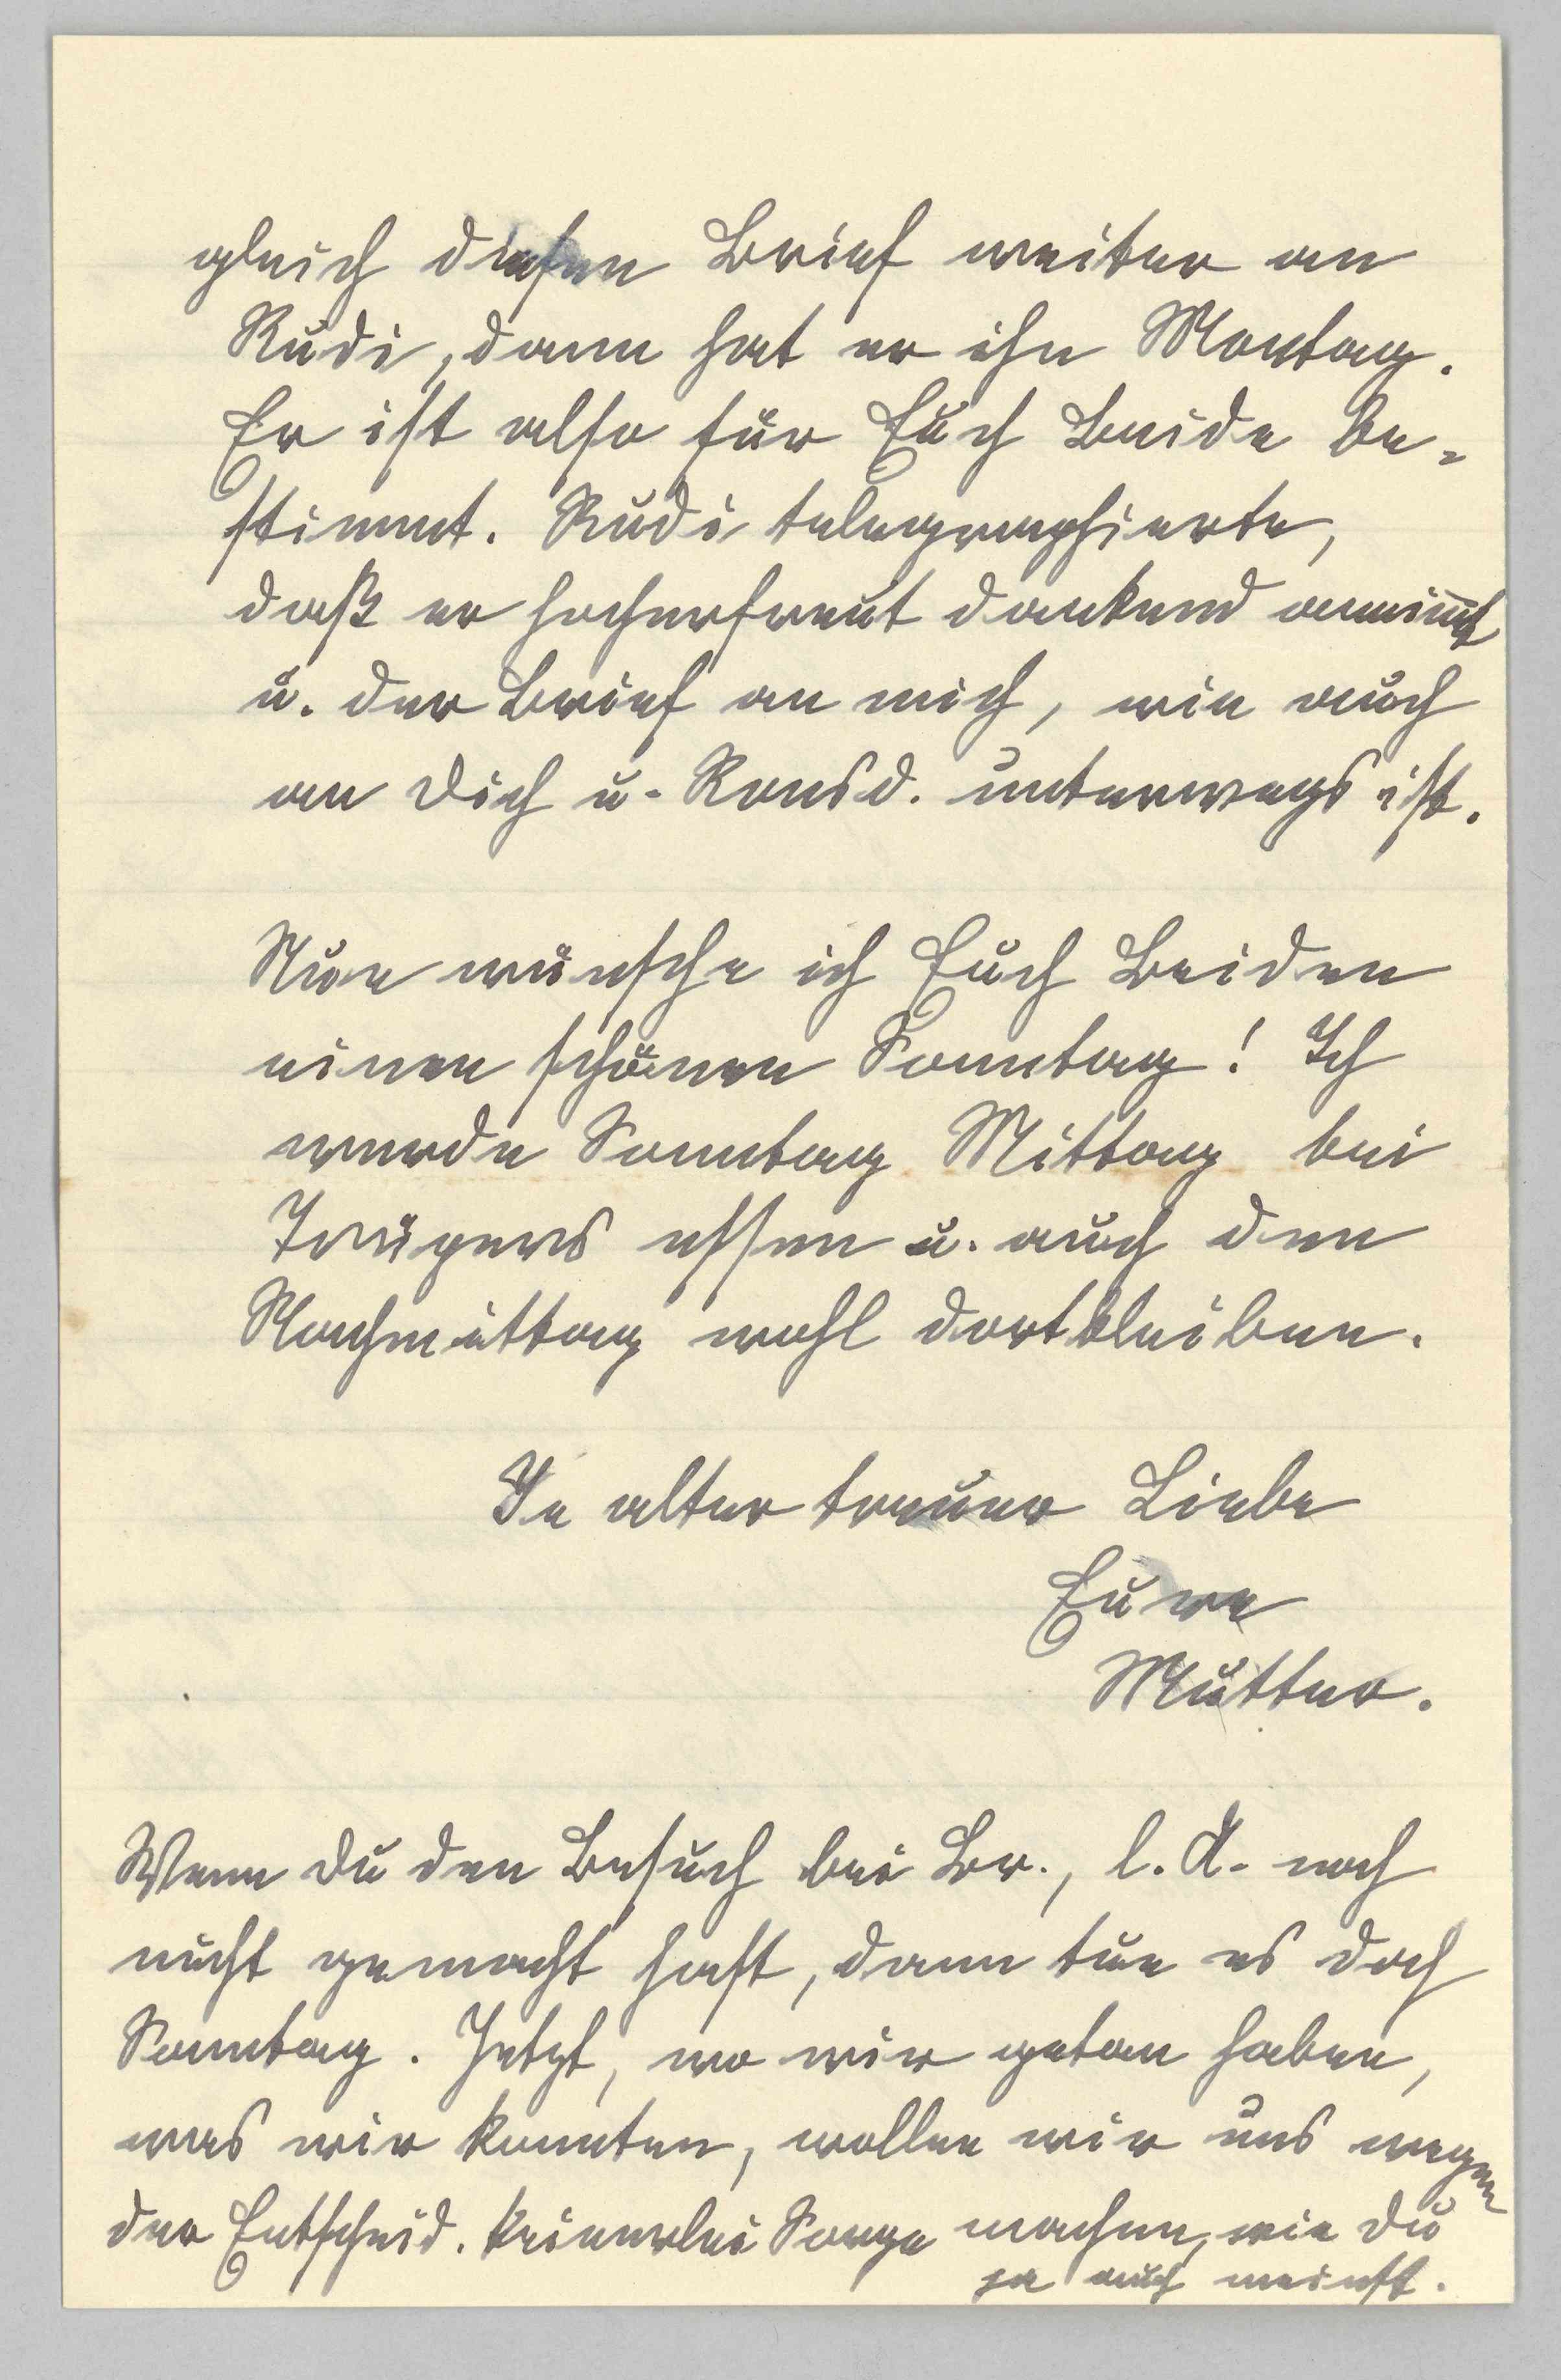 gleich diesen Brief weiter an
Rudi, dann hat er ihn Montag.
Er ist also für Euch Beide be-
stimmt. Rudi telegraphierte,
daß er hocherfreut dankend annimt
u. der Brief an mich, wie auch
an Dich u. Ronsd. unterwegs ist.
Nun wünsche ich Euch Beiden
einen schönen Sonntag! Ich
werde Sonntag Mittag bei
essen u. auch den
Nachmittag wohl dortbleiben.
In alter treuer Liebe
Eure
Mutter.
Wenn Du den Besuch bei Br., l. A. noch
nicht gemacht hast, dann tue es doch
Sonntag. Jetzt, wo wir getan haben,
was wir konnten, wollen wir uns wegen
der Entscheid. keinerlei Sorge machen, wie Du
ja auch meinst.